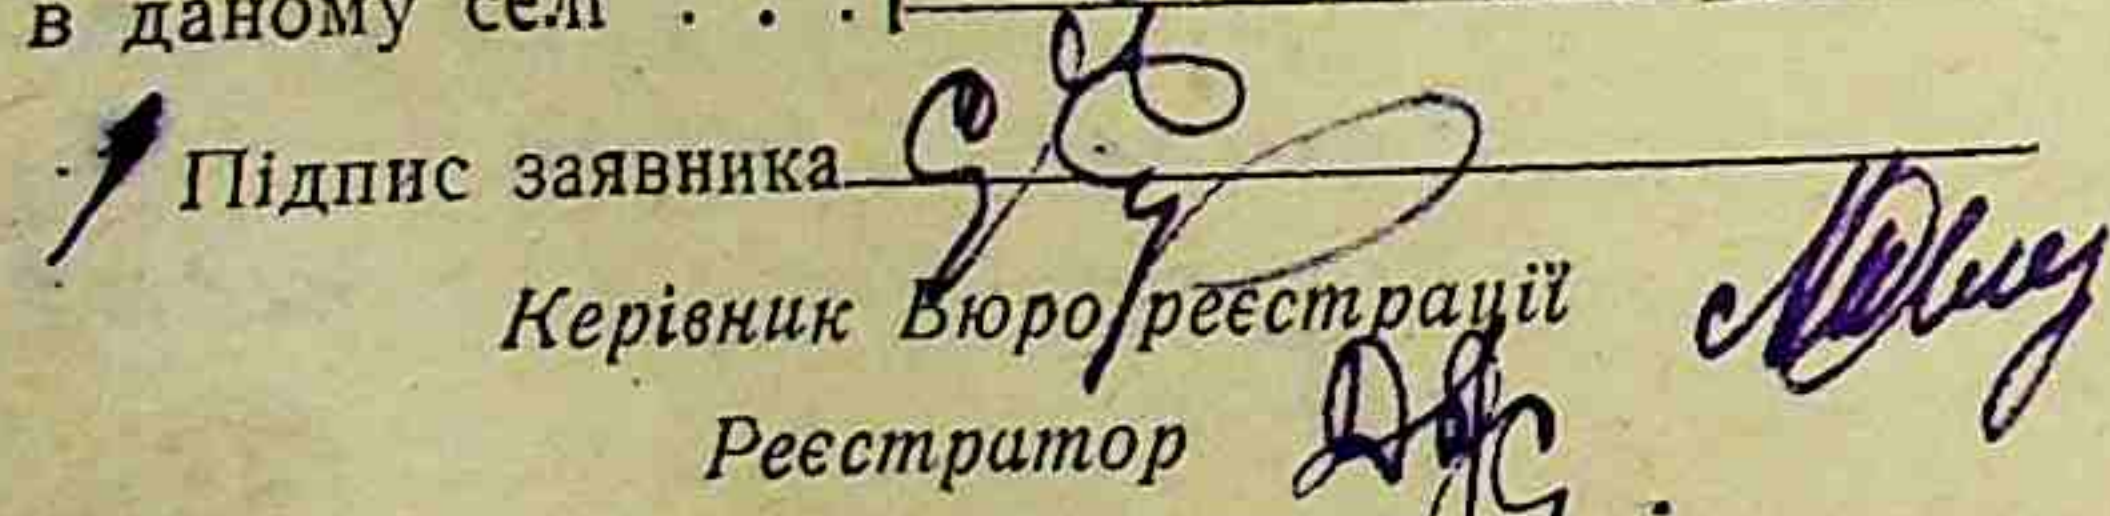 в даному селі . . .
Підпис заявника
Керівник Бюро реєстрації
Реєстратор